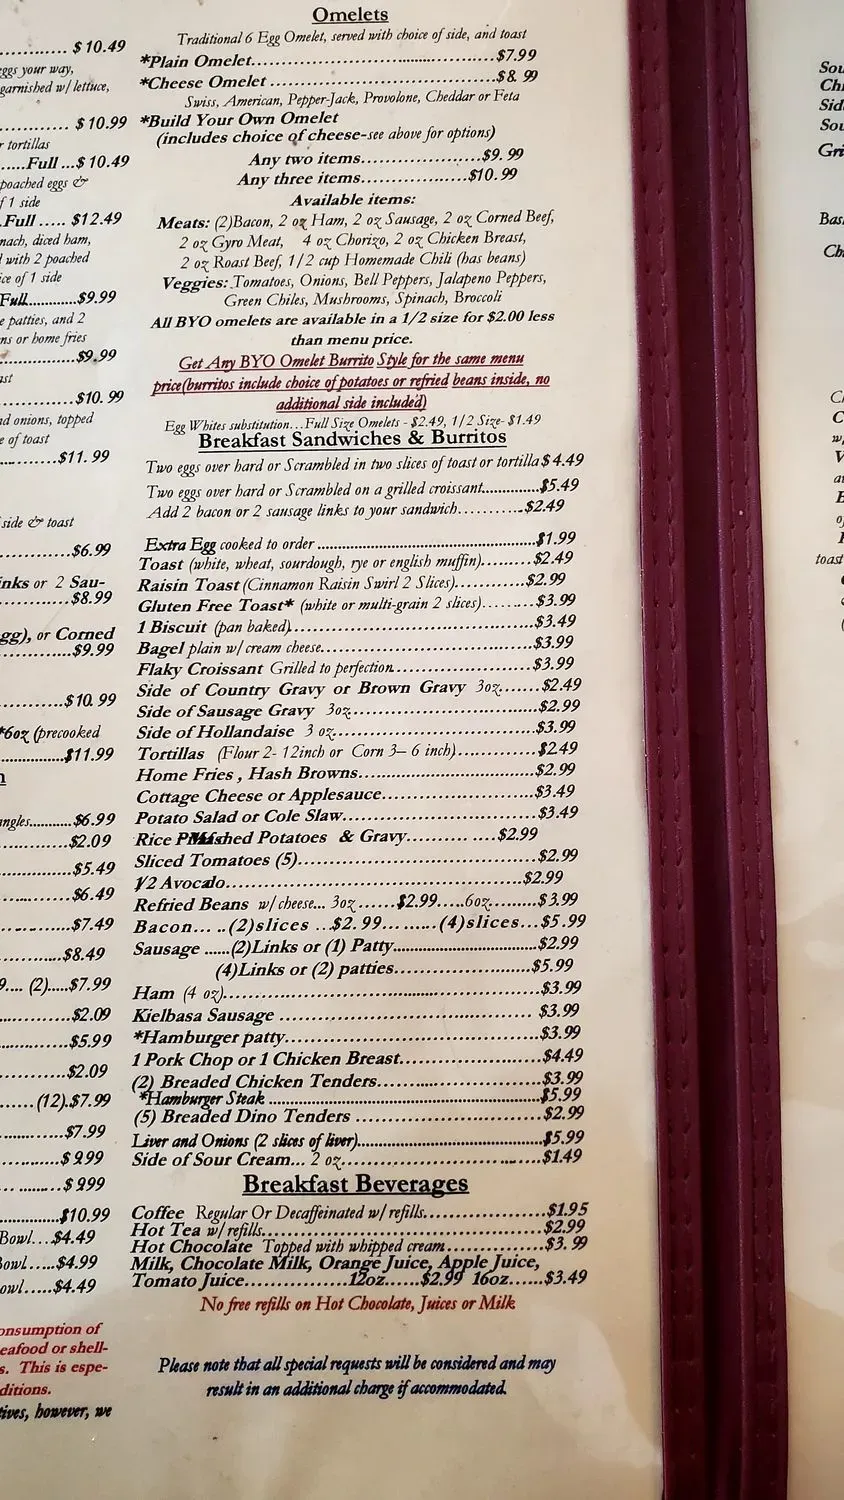 ............ $ 10.49
eggs your way,
garnished w/ lettuce,
............ $ 10.99
r tortillas
.....Full ...$ 10.49
poached eggs &
f 1 side
Full ..... $12.49
nach, diced ham,
l with 2 poached
ice of 1 side
Full............$9.99
e patties, and 2
ns or home fries
.............$9.99
ast
............$10. 99
nd onions, topped
e of toast
.............$11. 99
side & toast
............$6.99
inks or 2 Sau-
............$8.99
gg), or Corned
............$9.99
...........$10. 99
*6oz (precooked
............$11.99
ngles...........$6.99
............$2.09
............$5.49
............$6.49
............$7.49
............$8.49
9.... (2).....$7.99
............$2.09
............$5.99
............$2.09
......(12).$7.99
............$7.99
............$ 9.99
............$ 999
............$10.99
Bowl...$4.49
Bowl.....$4.99
owl.....$4.49
onsumption of
eafood or shell-
s. This is espe-
ditions.
tives, however, we
Omelets
Traditional 6 Egg Omelet, served with choice of side, and toast
*Plain Omelet...................................$7.99
*Cheese Omelet .................................$8. 99
Swiss, American, Pepper-Jack, Provolone, Cheddar or Feta
*Build Your Own Omelet
(includes choice of cheese-see above for options)
Any two items..................$9. 99
Any three items................$10. 99
Available items:
Meats: (2)Bacon, 2 oz Ham, 2 oz Sausage, 2 oz Corned Beef,
2 oz Gyro Meat, 4 oz Chorizo, 2 oz Chicken Breast,
2 oz Roast Beef, 1/2 cup Homemade Chili (has beans)
Veggies: Tomatoes, Onions, Bell Peppers, Jalapeno Peppers,
Green Chiles, Mushrooms, Spinach, Broccoli
All BYO omelets are available in a 1/2 size for $2.00 less
than menu price.
Get Any BYO Omelet Burrito Style for the same menu
price(burritos include choice of potatoes or refried beans inside, no
additional side included)
Egg Whites substitution...Full Size Omelets - $2.49, 1/2 Size- $1.49
Breakfast Sandwiches & Burritos
Two eggs over hard or Scrambled in two slices of toast or tortilla $ 4.49
Two eggs over hard or Scrambled on a grilled croissant..............$5.49
Add 2 bacon or 2 sausage links to your sandwich...........$2.49
Extra Egg cooked to order ............................................$1.99
Toast (white, wheat, sourdough, rye or english muffin).........$2.49
Raisin Toast (Cinnamon Raisin Swirl 2 Slices)............$2.99
Gluten Free Toast* (white or multi-grain 2 slices).........$3.99
1 Biscuit (pan baked)........................................$3.49
Bagel plain w/ cream cheese..................................$3.99
Flaky Croissant Grilled to perfection........................$3.99
Side of Country Gravy or Brown Gravy 3oz.......$2.49
Side of Sausage Gravy 3oz...............................$2.99
Side of Hollandaise 3 oz.................................$3.99
Tortillas (Flour 2- 12inch or Corn 3– 6 inch)............$2.49
Home Fries , Hash Browns.................................$2.99
Cottage Cheese or Applesauce.............................$3.49
Potato Salad or Cole Slaw................................$3.49
Rice Mashed Potatoes & Gravy......... ....$2.99
Sliced Tomatoes (5)......................................$2.99
1/2 Avocado..............................................$2.99
Refried Beans w/ cheese... 3oz......$2.99.....6oz.........$3.99
Bacon... ..(2)slices ...$2. 99.........(4)slices...$5.99
Sausage ......(2)Links or (1) Patty..........................$2.99
(4)Links or (2) patties.......................$5.99
Ham (4 oz)...............................................$3.99
Kielbasa Sausage ........................................ $3.99
*Hamburger patty.........................................$3.99
1 Pork Chop or 1 Chicken Breast..........................$4.49
(2) Breaded Chicken Tenders..............................$3.99
*Hamburger Steak ........................................$5.99
(5) Breaded Dino Tenders ................................$2.99
Liver and Onions (2 slices of liver).....................$5.99
Side of Sour Cream... 2 oz...............................$1.49
Breakfast Beverages
Coffee Regular Or Decaffeinated w/ refills..................$1.95
Hot Tea w/ refills..........................................$2.99
Hot Chocolate Topped with whipped cream..............$3. 99
Milk, Chocolate Milk, Orange Juice, Apple Juice,
Tomato Juice...............12oz......$2.99 16oz......$3.49
No free refills on Hot Chocolate, Juices or Milk
Please note that all special requests will be considered and may
result in an additional charge if accommodated.
Sou
Chi
Sid
Sou
Gri
Bas
toast